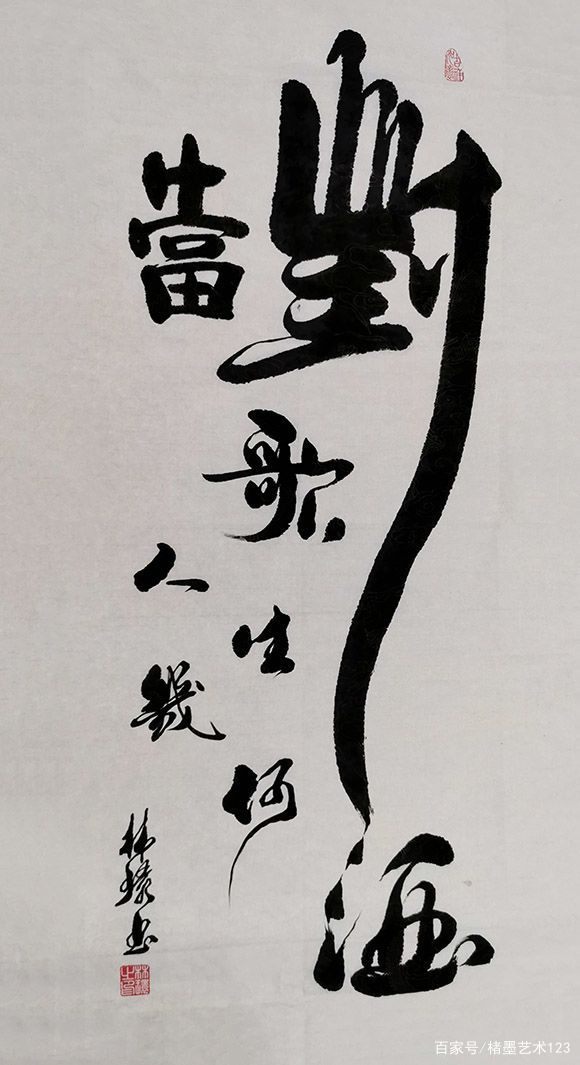 對酒
當歌
人生
幾何
百家号/楮墨艺术123